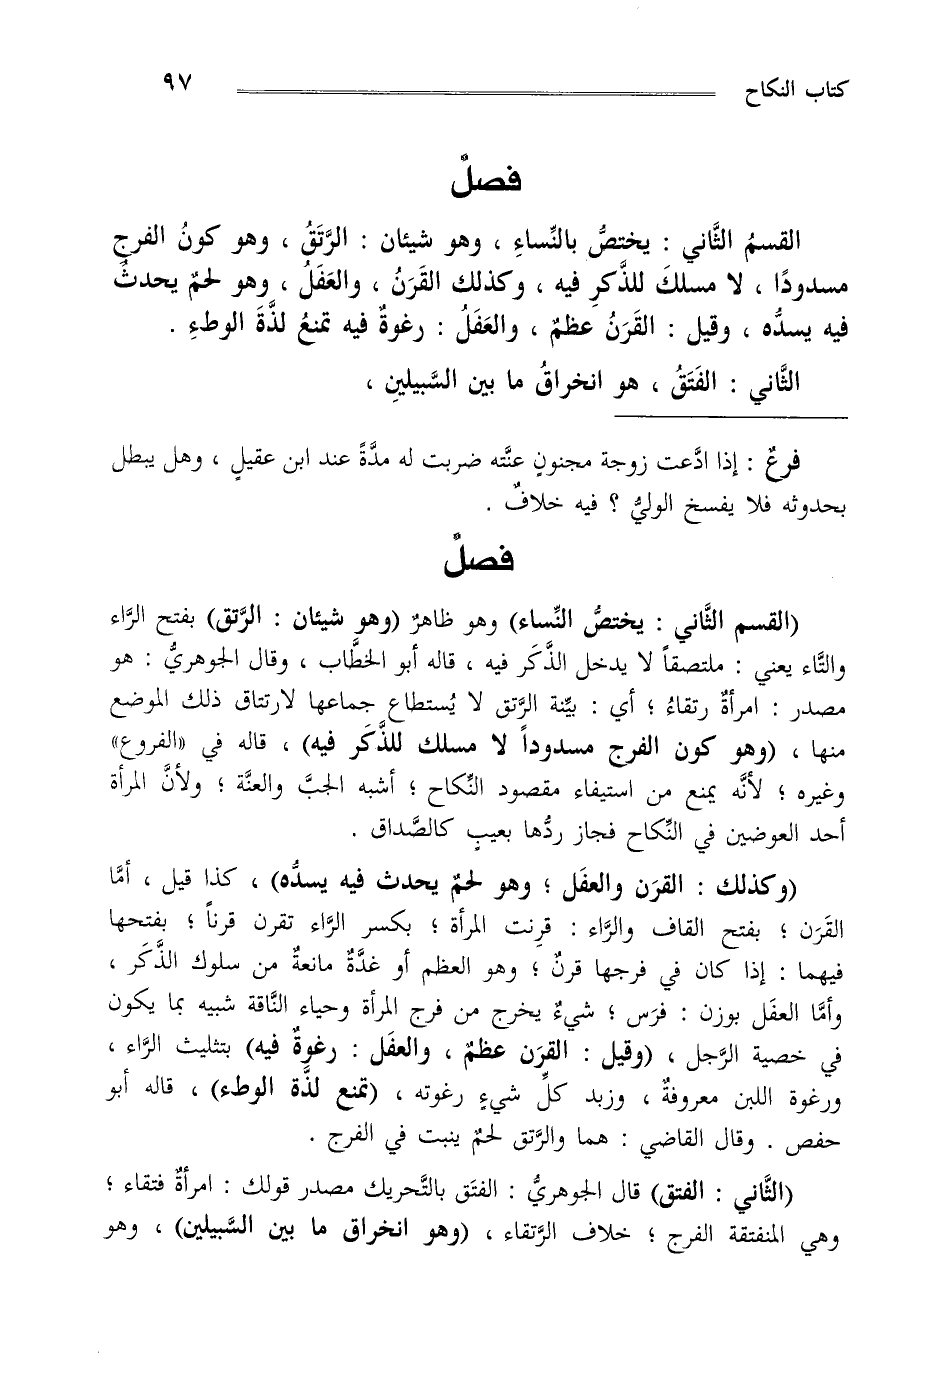 كتاب النكاح ٩٧
فصلٌ
القسمُ الثَّاني : يختصُّ بالنِّساءِ ، وهو شيئان : الرَّتَقُ ، وهو كونُ الفرجِ
مسدودًا ، لا مسلكَ للذَّكرِ فيه ، وكذلك القَرَنُ ، والعَفَلُ ، وهو لحمٌ يحدثُ
فيه يسدُّه ، وقيل : القَرَنُ عظمٌ ، والعَفَلُ : رغوةٌ فيه تمنعُ لذَّةَ الوطءِ .
الثَّاني : الفَتَقُ ، هو انخراقُ ما بين السَّبيلينِ ،
فرعٌ : إذا ادَّعت زوجة مجنونٍ عنَّته ضربت له مدَّةً عند ابن عقيلٍ ، وهل يبطل
بحدوثه فلا يفسخ الوليُّ ؟ فيه خلافٌ .
فصلٌ
(القسم الثَّاني : يختصُّ النِّساء) وهو ظاهرٌ (وهو شيئان : الرَّتق) بفتح الرَّاء
والتَّاء يعني : ملتصقاً لا يدخل الذَّكَر فيه ، قاله أبو الخطَّاب ، وقال الجوهريُّ : هو
مصدر : امرأةٌ رتقاءُ ؛ أي : بيِّنة الرَّتق لا يُستطاع جماعها لارتتاق ذلك الموضع
منها ، (وهو كون الفرج مسدوداً لا مسلك للذَّكَر فيه) ، قاله في «الفروع»
وغيره ؛ لأنَّه يمنع من استيفاء مقصود النِّكاح ؛ أشبه الجبَّ والعنَّة ؛ ولأنَّ المرأة
أحد العوضين في النِّكاح فجاز ردُّها بعيبٍ كالصَّداق .
(وكذلك : القرَن والعفَل ؛ وهو لحمٌ يحدث فيه يسدُّه) ، كذا قيل ، أمَّا
القَرَن ؛ بفتح القاف والرَّاء : قرِنت المرأة ؛ بكسر الرَّاء تقرن قرناً ؛ بفتحها
فيهما : إذا كان في فرجها قرنٌ ؛ وهو العظم أو غدَّةٌ مانعةٌ من سلوك الذَّكَر ،
وأمَّا العفَل بوزن : فرَس ؛ شيءٌ يخرج من فرج المرأة وحياء النَّاقة شبيه بما يكون
في خصية الرَّجل ، (وقيل : القرَن عظمٌ ، والعفَل : رغوةٌ فيه) بتثليث الرَّاء ،
ورغوة اللبن معروفةٌ ، وزبد كلِّ شيءٍ رغوته ، (تمنع لذَّة الوطء) ، قاله أبو
حفص . وقال القاضي : هما والرَّتق لحمٌ ينبت في الفرج .
(الثَّاني : الفتق) قال الجوهريُّ : الفتَق بالتَّحريك مصدر قولك : امرأةٌ فتقاء ؛
وهي المنفتقة الفرج ؛ خلاف الرَّتقاء ، (وهو انخراق ما بين السَّبيلين) ، وهو